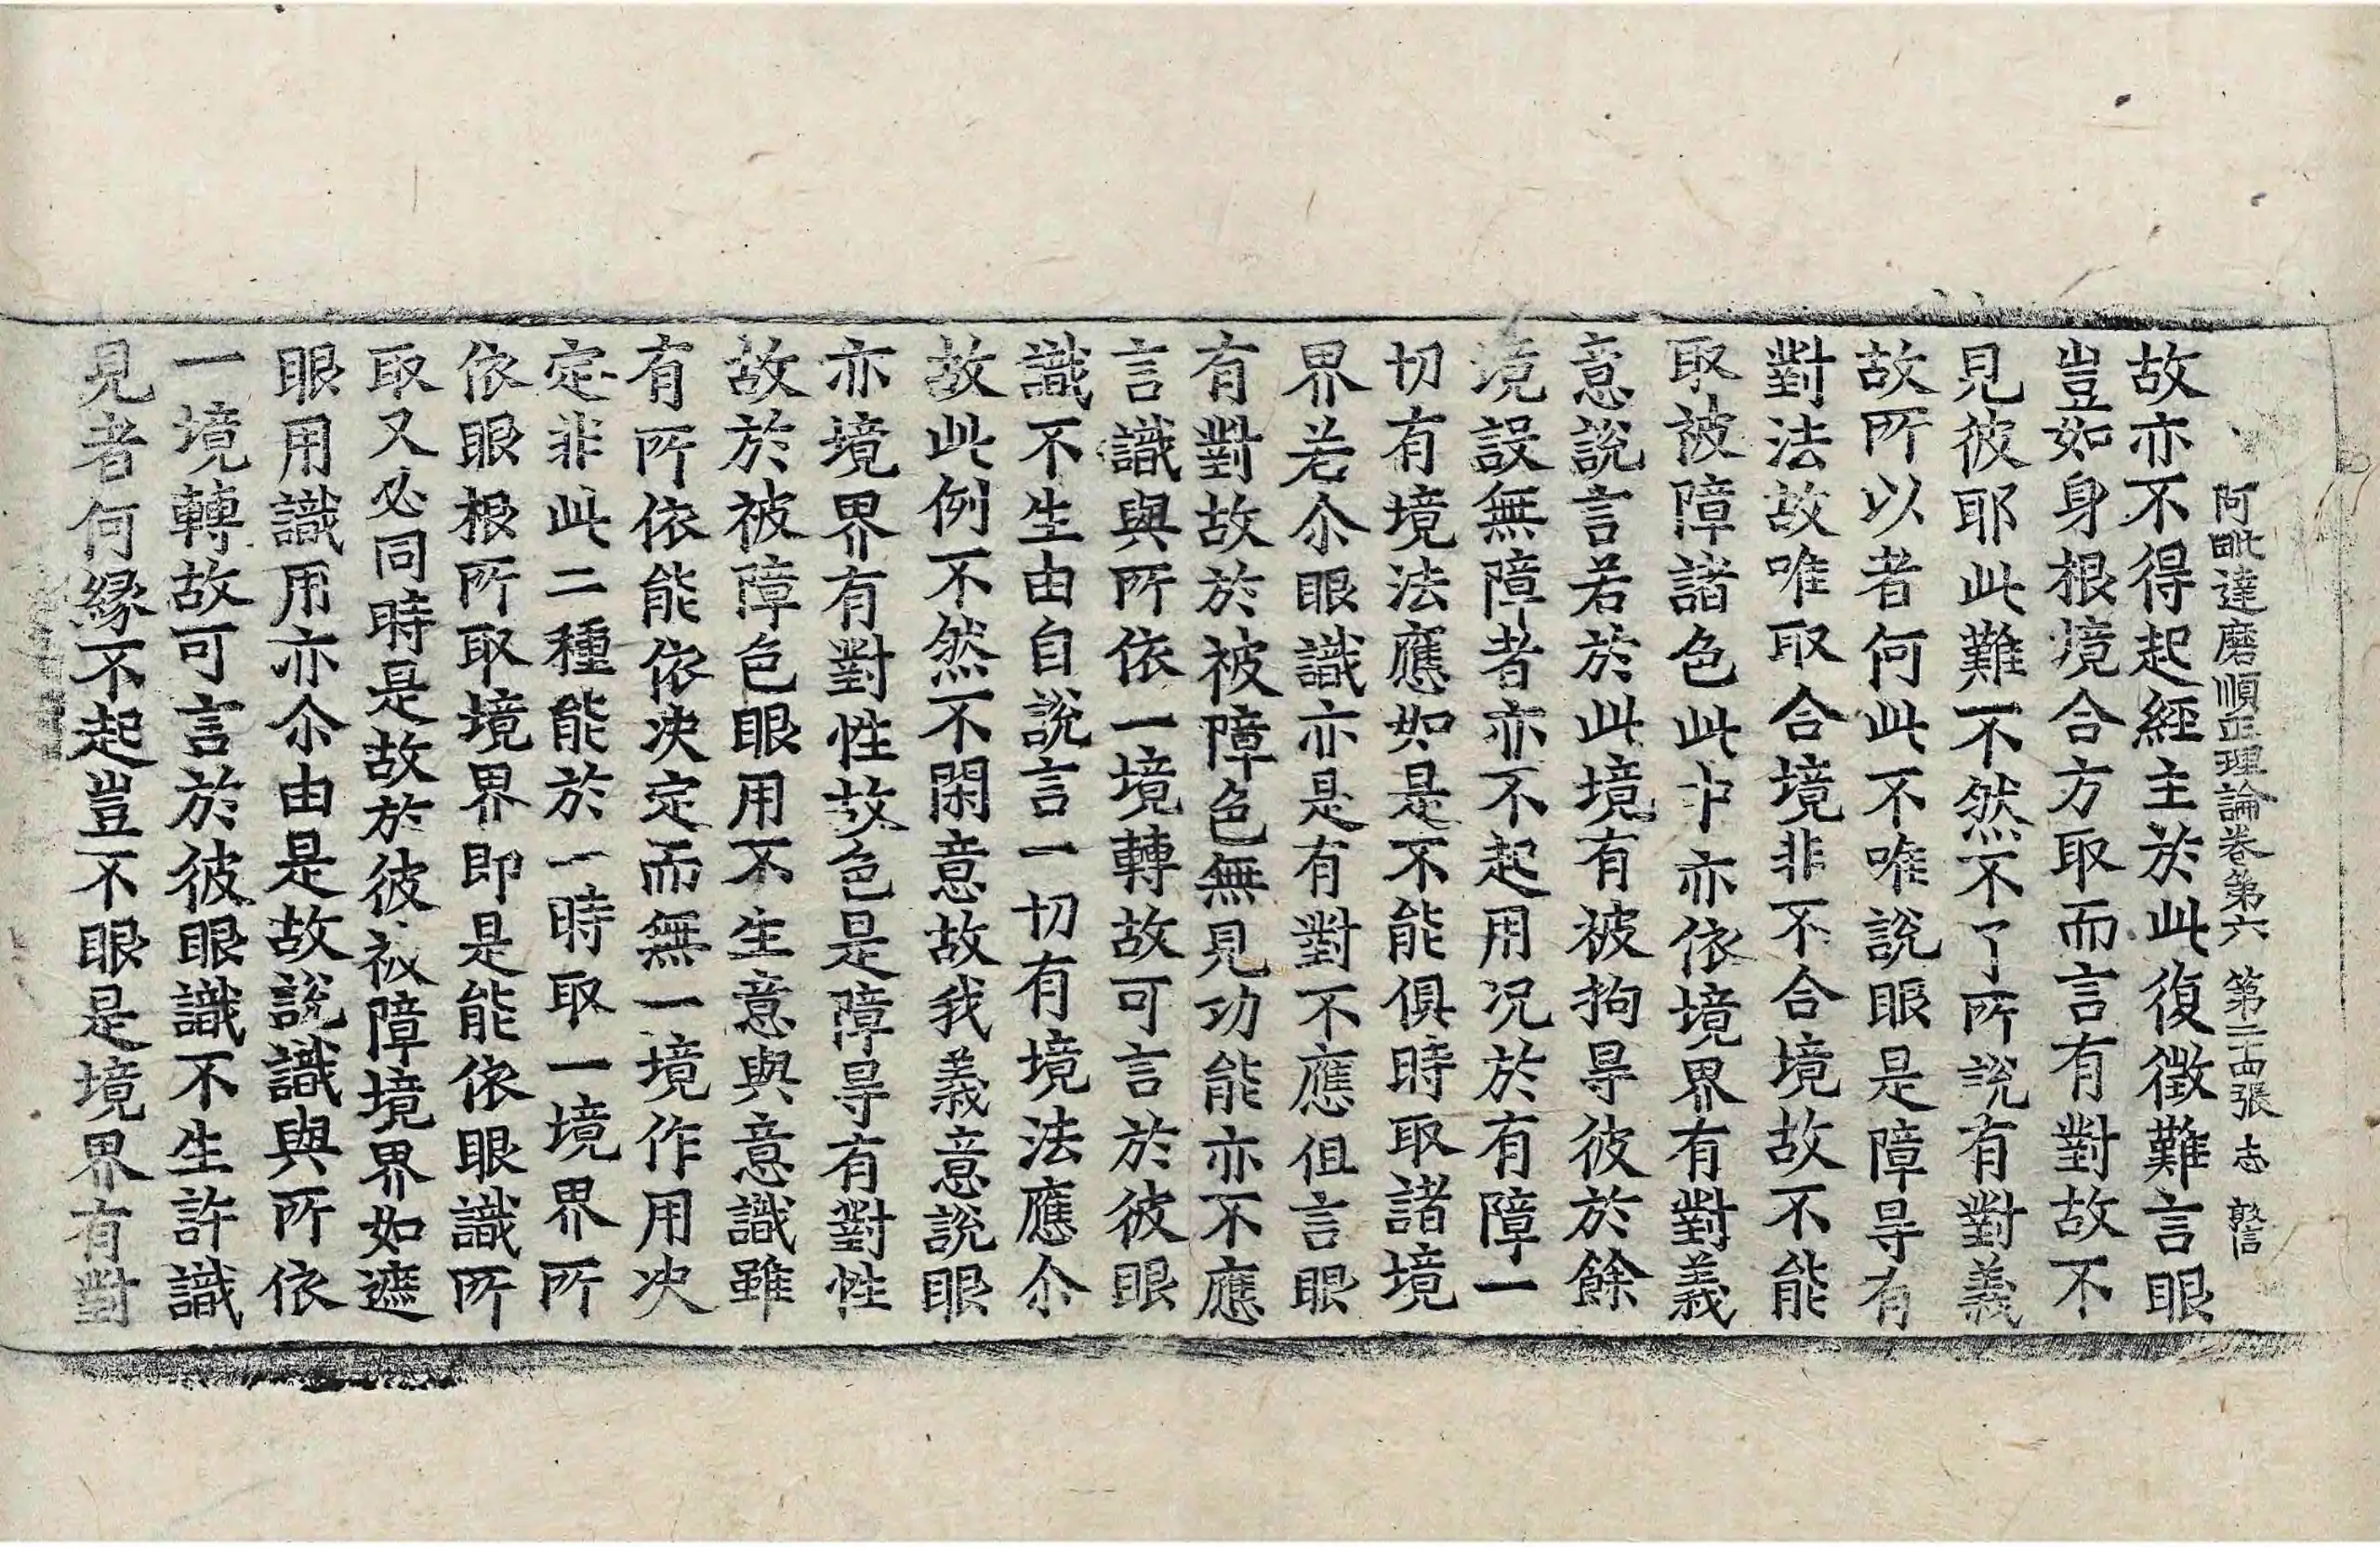 阿毗達磨順正理論卷第六　第二十四張　志
故亦不得起經主於此復徵難言眼
豈如身根境合方取而言有對故不
見彼耶此難不然不了所說有對義
故所以者何此不唯說眼是障㝵有
對法故唯取合境非不合境故不能
取被障諸色此中亦依境界有對義
意說言若於此境有被拘㝵彼於餘
境設無障者亦不起用况於有障一
切有境法應如是不能俱時取諸境
界若尒眼識亦是有對不應但言眼
有對故於被障色無見功能亦不應
言識與所依一境轉故可言於彼眼
識不生由自說言一切有境法應尒
故此例不然不閑意故我義意說眼
亦境界有對性故色是障㝵有對性
故於被障色眼用不生意與意識雖
有所依能依决定而無一境作用决
定非此二種能於一時取一境界所
依眼根所取境界即是能依眼識所
取又必同時是故於彼被障境界如遮
眼用識用亦尒由是故說識與所依
一境轉故可言於彼眼識不生許識
見者何緣不起豈不眼是境界有對